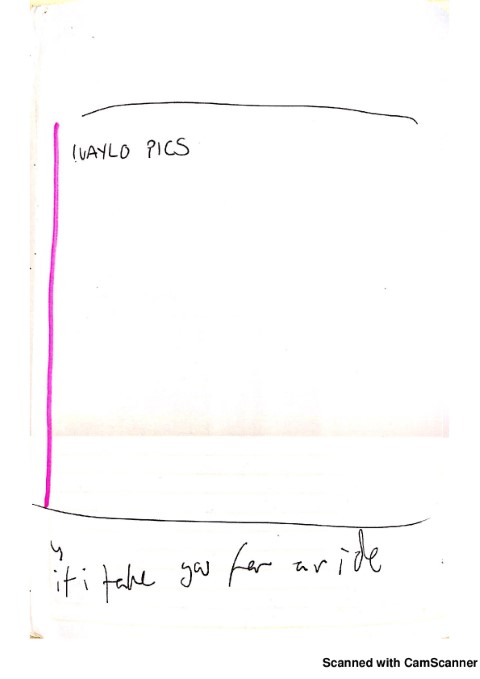 IVAYLO PICS
↳ if i take you for a ride
Scanned with CamScanner